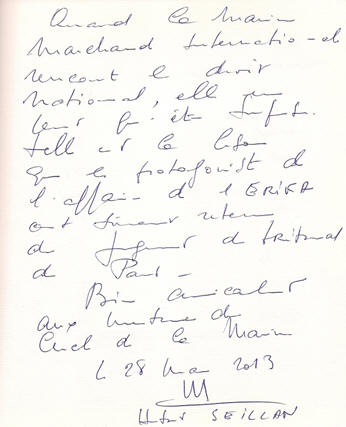 Quand la Marine
Marchande Internationale
rencontre le droit
National, elle ne
peut qu'être
Telle est la leçon
que les protagonistes de
l'affaire de l'ERIKA
ont retenu
du jugement du tribunal
de Paris -
Bien amicalement
aux membres du
Cercle de la Marine
Le 28 Mai 2013
SEILLAN